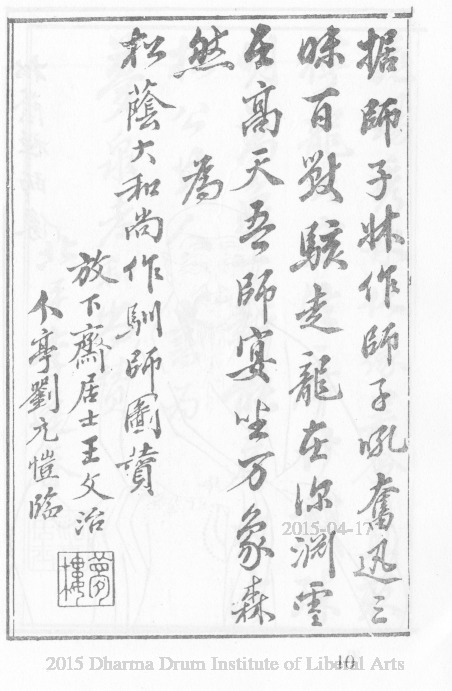 据師子牀作師子吼奮迅三
昧百獸駭走龍在深淵雲
在高天吾師宴坐万象森
然　為
松蔭大和尚作馴師圖贊
放下齋居士王文治
介亭劉元愷臨
夢樓
2015-04-17
10
2015 Dharma Drum Institute of Liberal Arts